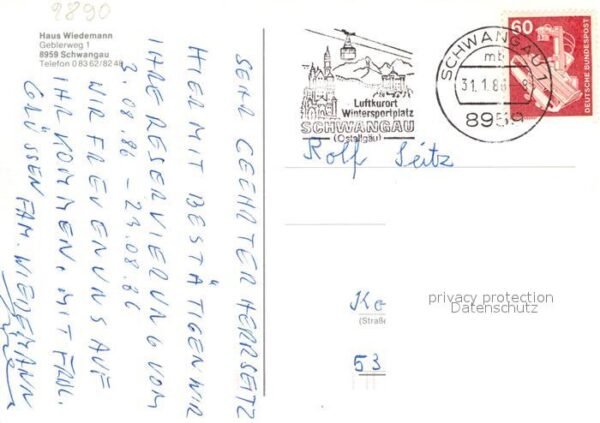 9890
Haus Wiedemann
Geblerweg 1
8959 Schwangau
Telefon 0 83 62/82 48
SEHR GEEHRTER HERR SEITZ
HIERMIT BESTÄTIGEN WIR
IHRE RESERVIERUNG VOM
3.08.86 – 23.08.86
WIR FREUEN UNS AUF
IHR KOMMEN. MIT FRDL.
GRÜSSEN FAM. WIEDEMANN
Luftkurort
Wintersportplatz
SCHWANGAU
(Ostallgäu)
SCHWANGAU 1
mb
31.1.86
8959
60
DEUTSCHE BUNDESPOST
Rolf Seitz
Ko
(Straße
53
privacy protection
Datenschutz